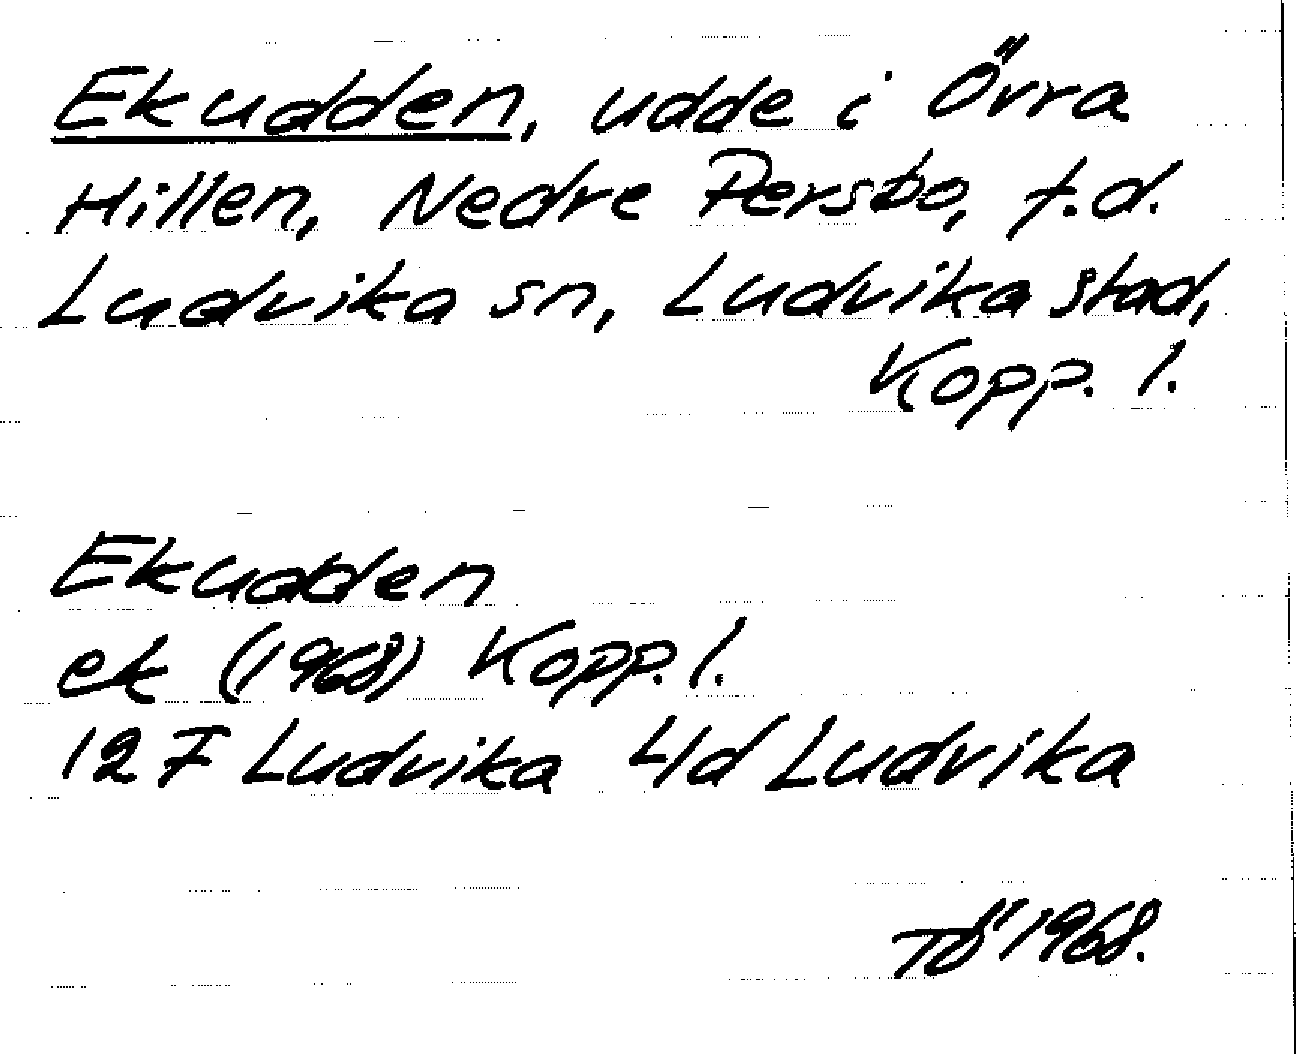 Ekudden, udde i Övra
Hillen, Nedre Persbo, f.d.
Ludvika sn, Ludvika stad,
Kopp. l.
Ekudden
ek (1968) Kopp. l.
12F Ludvika 4d Ludvika
TÖ 1968.